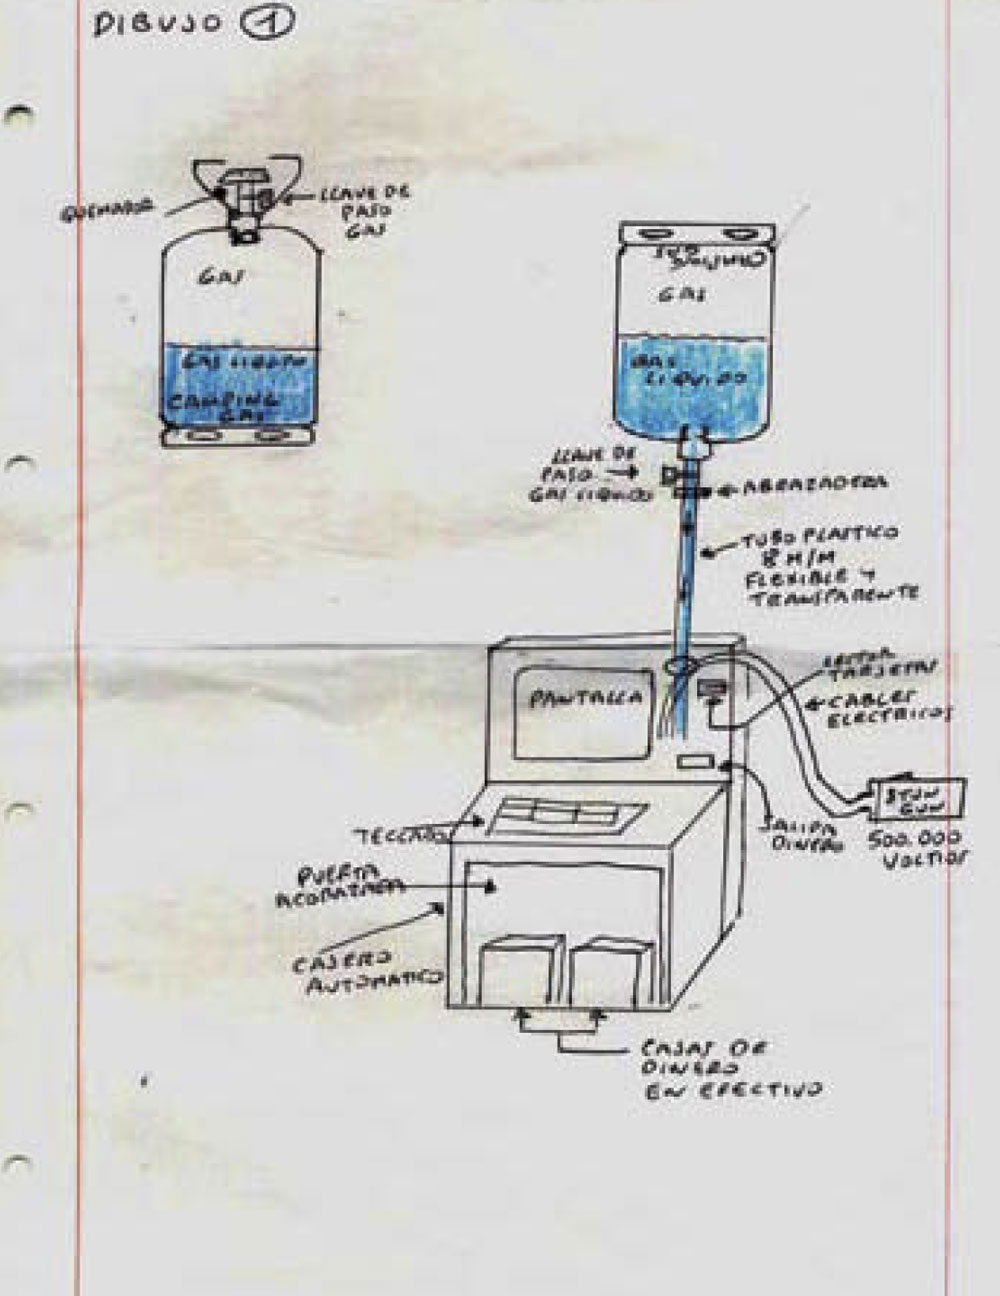 DIBUJO 1
QUEMADOR
LLAVE DE
PASO
GAS
GAS
GAS LIQUIDO
CAMPING
GAS
CAMPING
GAS
GAS
GAS
LIQUIDO
LLAVE DE
PASO
GAS LIQUIDO
ABRAZADERA
TUBO PLASTICO
8 M/M
FLEXIBLE Y
TRANSPARENTE
LECTOR
TARJETAS
PANTALLA
CABLES
ELECTRICOS
STUN
GUN
500.000
VOLTIOS
TECLADO
SALIDA
DINERO
PUERTA
ACORAZADA
CAJERO
AUTOMATICO
CAJAS DE
DINERO
EN EFECTIVO